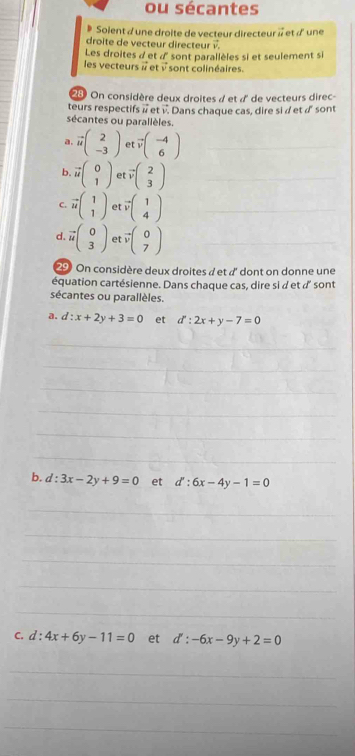 ou sécantes
Soient d une droite de vecteur directeur u⃗ et d' une
droite de vecteur directeur v⃗.
Les droites d et d' sont parallèles si et seulement si
les vecteurs u⃗ et v⃗ sont colinéaires.
28 On considère deux droites d et d' de vecteurs direc-
teurs respectifs u⃗ et v⃗. Dans chaque cas, dire si d et d' sont
sécantes ou parallèles.
a. u⃗ (2 -3) et v⃗ (-4 6)
b. u⃗ (0 1) et v⃗ (2 3)
c. u⃗ (1 1) et v⃗ (1 4)
d. u⃗ (0 3) et v⃗ (0 7)
29 On considère deux droites d et d' dont on donne une
équation cartésienne. Dans chaque cas, dire si d et d' sont
sécantes ou parallèles.
a. d : x + 2y + 3 = 0 et d' : 2x + y − 7 = 0
b. d : 3x − 2y + 9 = 0 et d' : 6x − 4y − 1 = 0
c. d : 4x + 6y − 11 = 0 et d' : −6x − 9y + 2 = 0